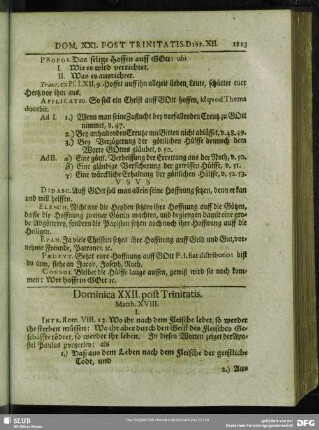 DOM. XXI. POST TRINITATIS. Disp. XII. 1123
Propos. Das selige Hoffen auff GOtt: ubi
I. Wie es wird verrichtet,
II. Was es ausrichtet.
Trans. ex Ps. LXII, 9. Hoffet auff ihn allezeit lieben Leute, schüttet euer
Hertz vor ihm aus.
Applicatio. So soll ein Christ auff GOtt hoffen, id quod Thema
docebit.
Ad I. 1.) Wenn man seine Zuflucht bey vorfallenden Creutz zu GOtt
nimmet, v. 47.
2.) Bey anhaltenden Creutze mit Bitten nicht abläßt, v. 48. 49.
3.) Bey Verzögerung der göttlichen Hülffe dennoch dem
Worte GOttes gläubet, v. 50.
Ad II. α) Eine göttl. Verheissung der Errettung aus der Noth, v. 50.
β) Eine gläubige Versicherung der gewissen Hülffe, v. 51.
γ) Eine würckliche Erhaltung der göttlichen Hülffe, v. 52. 53.
V S V S
Didasc. Auff GOtt soll man allein seine Hoffnung setzen, denn er kan
und will helffen.
Elench. Nicht nur die Heyden setzen ihre Hoffnung auff die Götzen,
da sie die Hoffnung zu einer Göttin machten, und begiengen damit eine gro-
be Abgötterey, sondern die Papisten setzen auch noch ihre Hoffnung auff die
Heiligen.
Epan. Ja viele Christen setzen ihre Hoffnung auff Geld und Gut, vor-
nehme Freunde, Patronen ꝛc.
Protrept. Setzet eure Hoffnung auff GOtt P. I. fiat distributio: bist
du arm, siehe an Jacob, Joseph, Ruth.
Consol. Bleibet die Hülffe lange aussen, gewiß wird sie noch kom-
men: Wer hofft in GOtt ꝛc.
Dominica XXII. post Trinitatis.
Matth. XVIII.
I.
Intr. Rom. VIII. 13. Wo ihr nach dem Fleische lebet, so werdet
ihr sterben müssen: Wo ihr aber durch den Geist des Fleisches Ge-
schäffte tödtet, so werdet ihr leben. In diesen Worten zeiget der Apo-
stel Paulus zweyerley: als
1.) Daß aus dem Leben nach dem Fleische der geistliche
Todt, und
2.) Aus
SLUB
Wir führen Wissen.